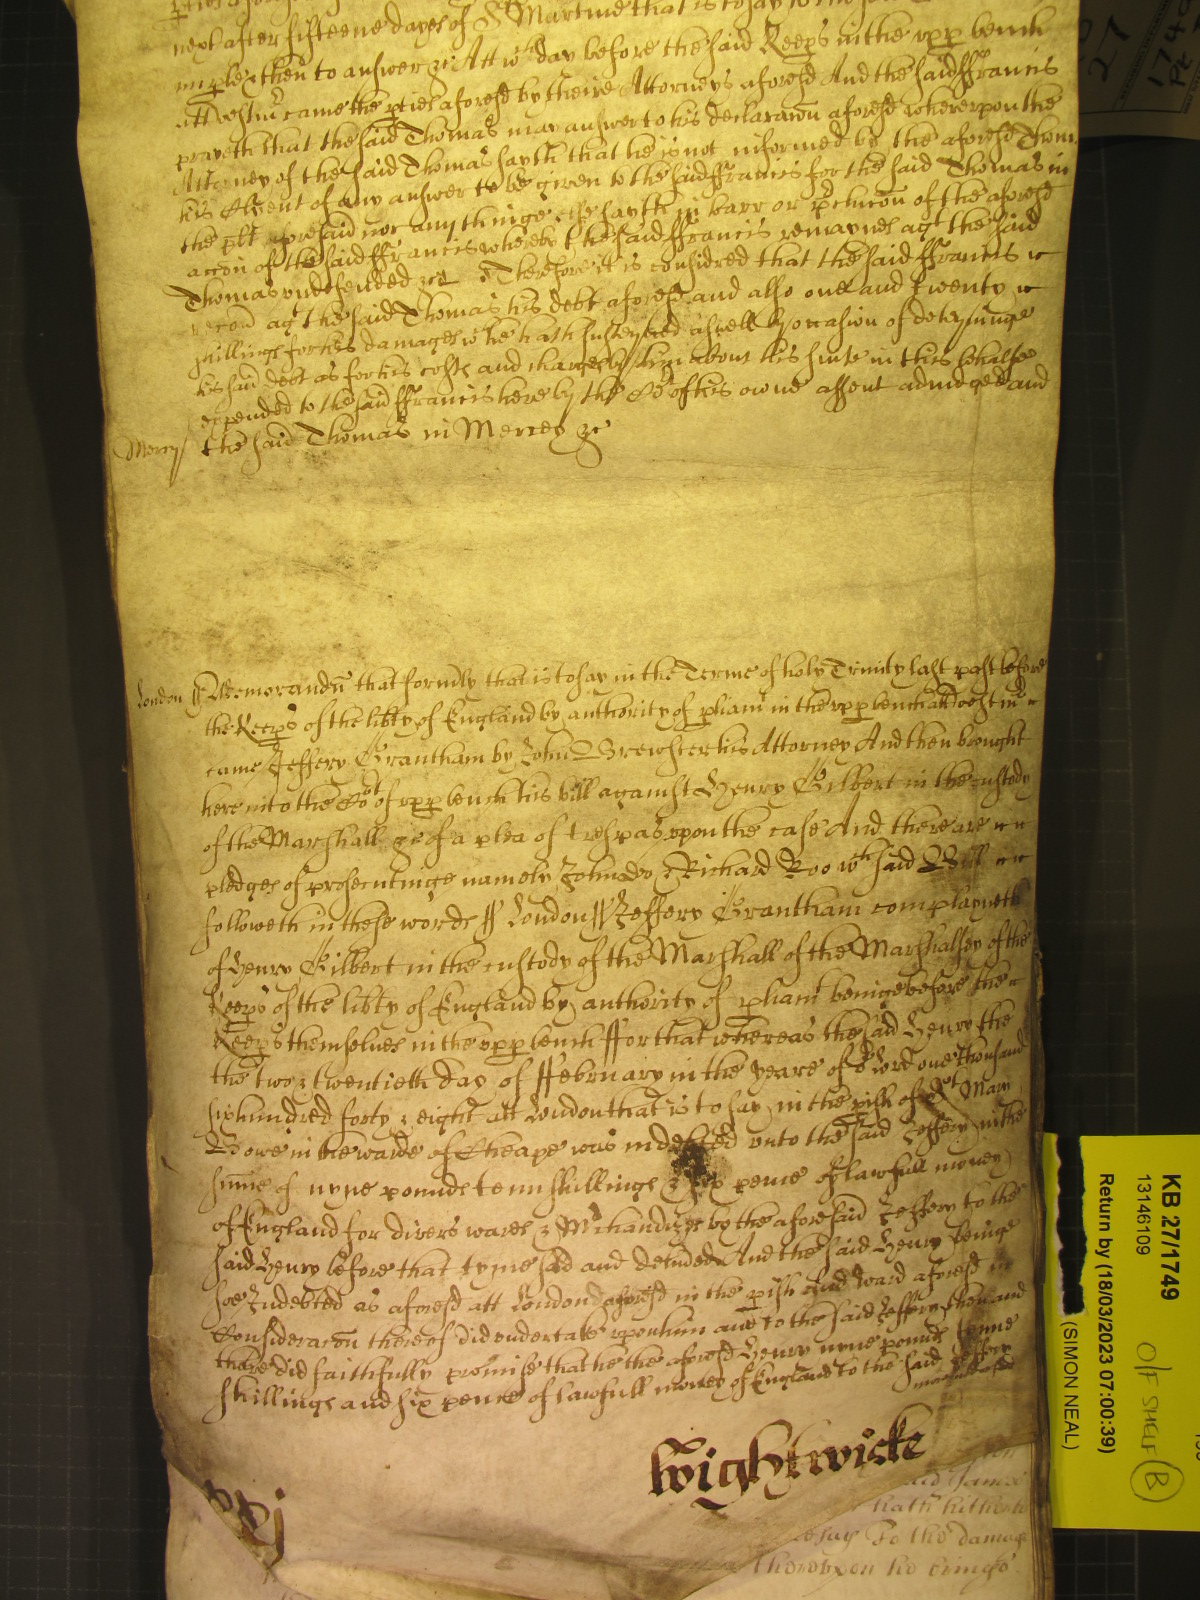 next after fifteene dayes of St Martine that is to say
imple & then to answer &c Att wch day before the said Keeps in the vpp bench
att Westmr came the pties aforesd by theire Attorneys aforesd And the said ffrancis
prayeth that the said Thomas may answer to his declaracon aforesd Wherevpon the
Attorney of the said Thomas sayth that he is not informed by the aforesd Thom
his Clyent of any answer to be given to the said ffrancis for the said Thomas in
the plt aforesaid nor any thinge else sayth in barr or pclucon of the aforesd
accon of the said ffrancis whereby the said ffrancis remaynes agt the said
Thomas vndefended &c Therefore it is considred that the said ffrancis
recov agt the said Thomas his debt aforesd and also one and twenty
shillings for his damages wch he hath susteyned aswell by occasion of deteyninge
his said debt as for his costs and charges by him about his suite in this behalfe
expended to the said ffrancis here by the Cot of his owne assent adiudged and
Mercy the said Thomas in Mercy &c
London ss Memorandu that formly that is to say in the Terme of holy Trinity last past before
the Keeps of the libty of England by authority of pliamt in the vpp bench att Westmr
came Jeffery Grantham by John Brewster his Attorney And then brought
here into the Cot of vpp bench his bill against Henry Gilbert in the custody
of the Marshall &c of a plea of trespas vpon the case And there are
pledges of prosecutinge namely John Doo & Richard Roo wch said Bill
followeth in these words ss London ss Jeffery Grantham complayneth
of Henry Gilbert in the custody of the Marshall of the Marshalsey of the
Keeps of the libty of England by authority of pliamt beinge before the
Keeps themselves in the vpp bench ffor that whereas the said Henry the
the two & twentieth day of ffebruary in the yeare of or Lord one thousand
six hundred forty & eight att London that is to say in the pish of St Mary
Bowe in the warde of Cheape was indebted vnto the said Jeffery in the
sume of nyne pounds tenn shillings & six pence of lawfull money
of England for divers wares & Mchandizes by the aforesaid Jeffery to the
said Henry before that tyme sold and deliued And the said Henry beinge
soe Indebted as aforesd att London aforesd in the pish and Ward aforesd in
Consideracon thereof did vndertake vpon him and to the said Jeffery then and
there did faithfully promise that he the aforesd Henry nyne pounds tenne
shillings and six pence of lawfull money of England to the said Jeffery
Wightwicke
said James
hath hitherto
To the damage
therevpon he bringe
KB 27/1749
13146109
Return by (18/03/2023 07:00:39)
(SIMON NEAL)
O/F SHELF B
27